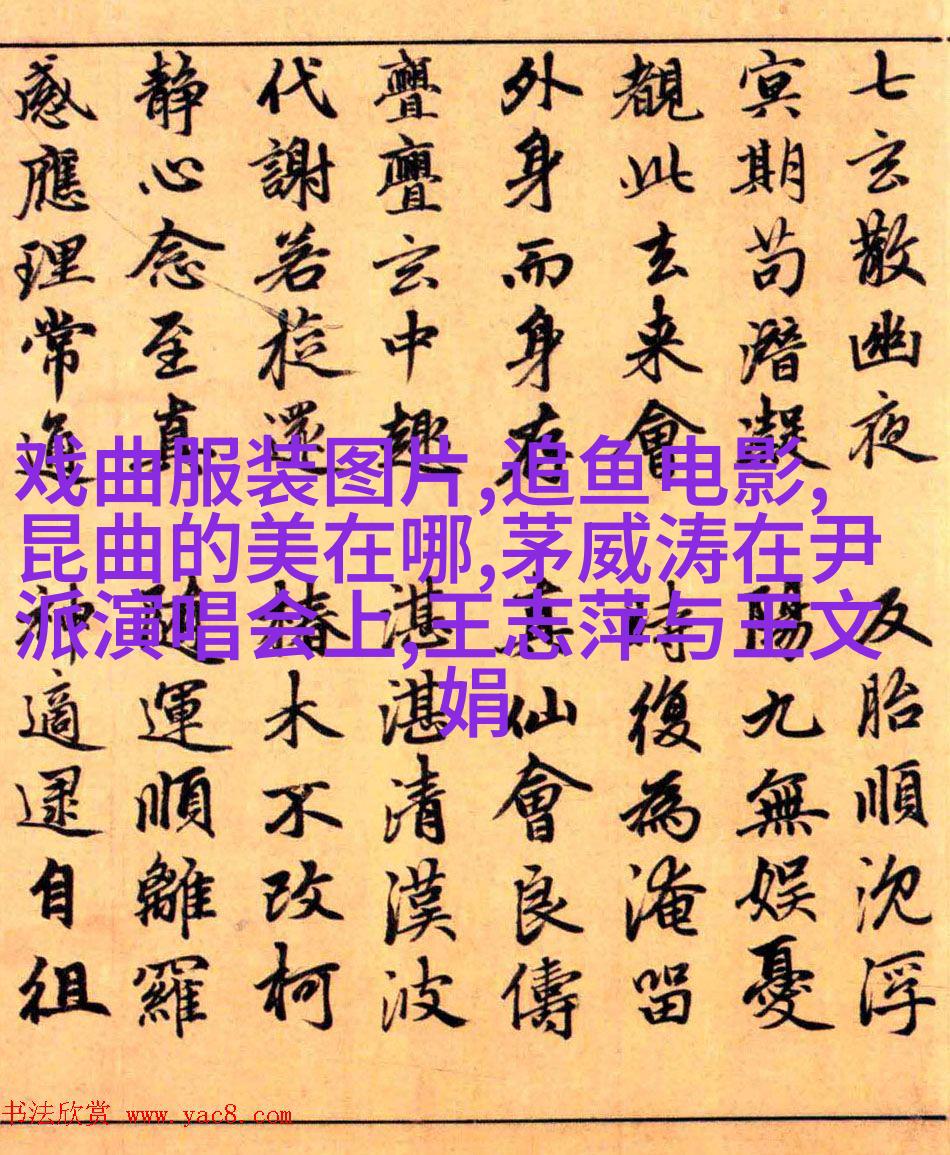 七玄散幽夜 反胎順沈浮
冥期苟潛凝 陽九無娛憂
覩此去来會 時復為淹留
外身而身存 真仙會良儔
亹亹玄中趣 湛湛清漢波
代謝若旋還 椿木不改柯
静心念至真 隨運順離羅
感應理常 神適逮自徂
戏曲服装图片,追鱼电影,
昆曲的美在哪,茅威涛在尹
派演唱会上,王志萍与王文
娟
书法欣赏 www.yac8.com